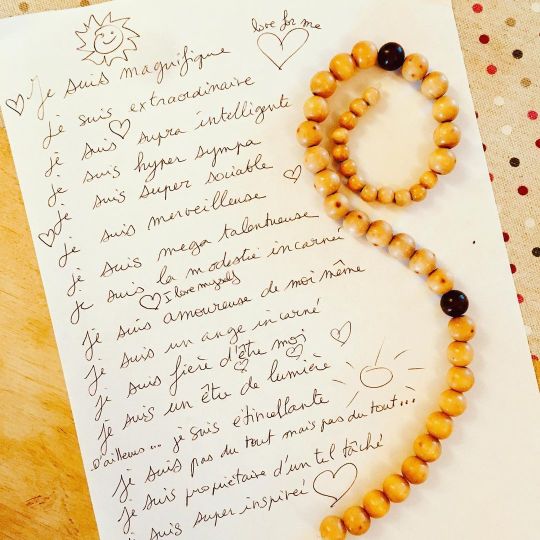 love for me
Je suis magnifique
je suis extraordinaire
je suis supra intelligente
je suis hyper sympa
je suis super sociable
je suis merveilleuse
je suis mega talentueuse
je suis la modestie incarnée
I love myself
je suis amoureuse de moi même
je suis un ange incarné
je suis fière d'être moi
je suis un être de lumière
D'ailleurs... je suis étincellante
je suis pas du tout mais pas du tout...
je suis propriétaire d'un tel tâché
je suis super inspirée